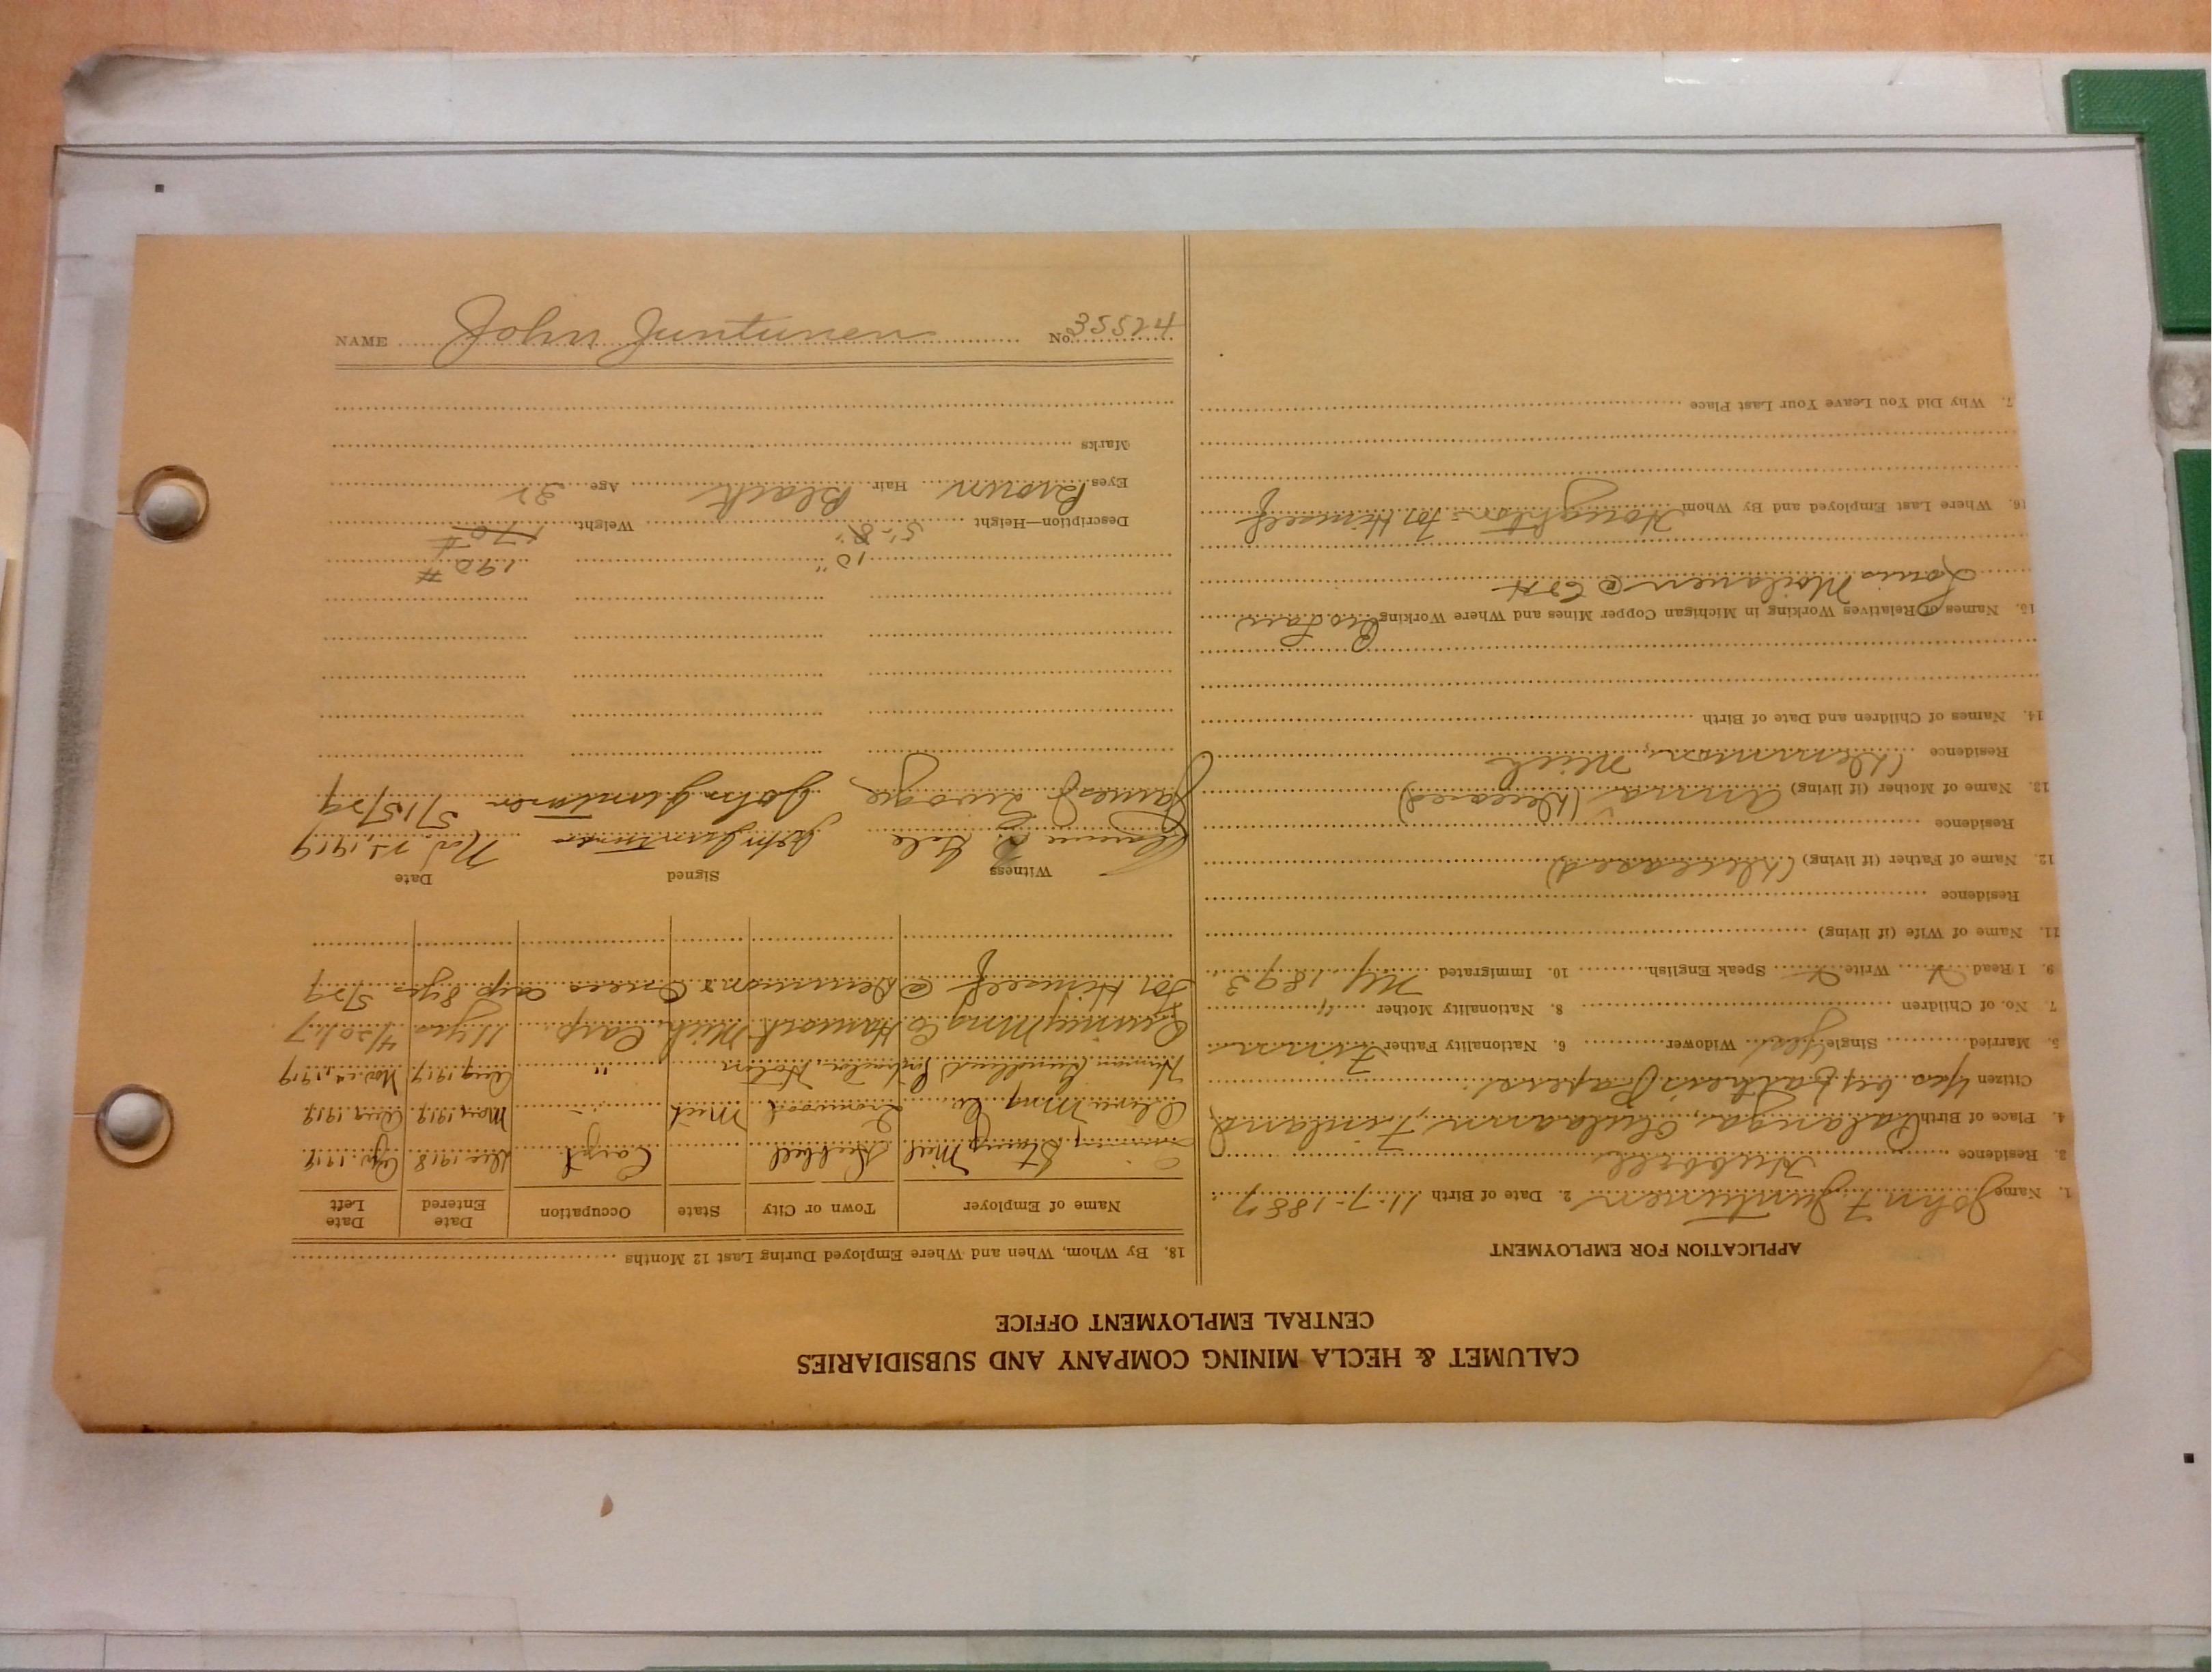 CALUMET & HECLA MINING COMPANY AND SUBSIDIARIES
CENTRAL EMPLOYMENT OFFICE
APPLICATION FOR EMPLOYMENT
1. Name John F Juntunen 2. Date of Birth 11-7-1887
3. Residence Hubbell
4. Place of Birth Palanga, Finland
Citizen Yes by Fathers Papers
5. Married Single Yes Widower 6. Nationality Father Finn
7. No. of Children 8. Nationality Mother "
9. I Read Write Speak English 10. Immigrated 1893
11. Name of Wife (if living)
Residence
12. Name of Father (if living) (Deceased)
Residence
13. Name of Mother (if living) Anna (Deceased)
Residence Demmon, Mich
14. Names of Children and Date of Birth
15. Names of Relatives Working in Michigan Copper Mines and Where Working
Louis Moilanen @ C&H
16. Where Last Employed and By Whom Houghton - for Himself
7. Why Did You Leave Your Last Place
18. By Whom, When and Where Employed During Last 12 Months
Name of Employer Town or City State Occupation Date Entered Date Left
Stamp Mill Hubbell Carpt Dec 1918 1919
Oliver Mng Co. Ironwood Mich " May 1919 Aug 1919
Herman Gundlach Contractor, Hoton " Aug 1919 Nov 1919
Quincy Mng Co Hancock Mich Carp. 11 yrs 4/20/17
For Himself @ Demmon & carp 8 yrs 5/29
Witness Signed Date
Clarence Gale John Juntunen Nov. 22, 1919
James J John Juntunen 5/15/29
10" 190 #
Description—Height 5'-8" Weight 170 #
Eyes Brown Hair Black Age 32
Marks
NAME John Juntunen No. 35524